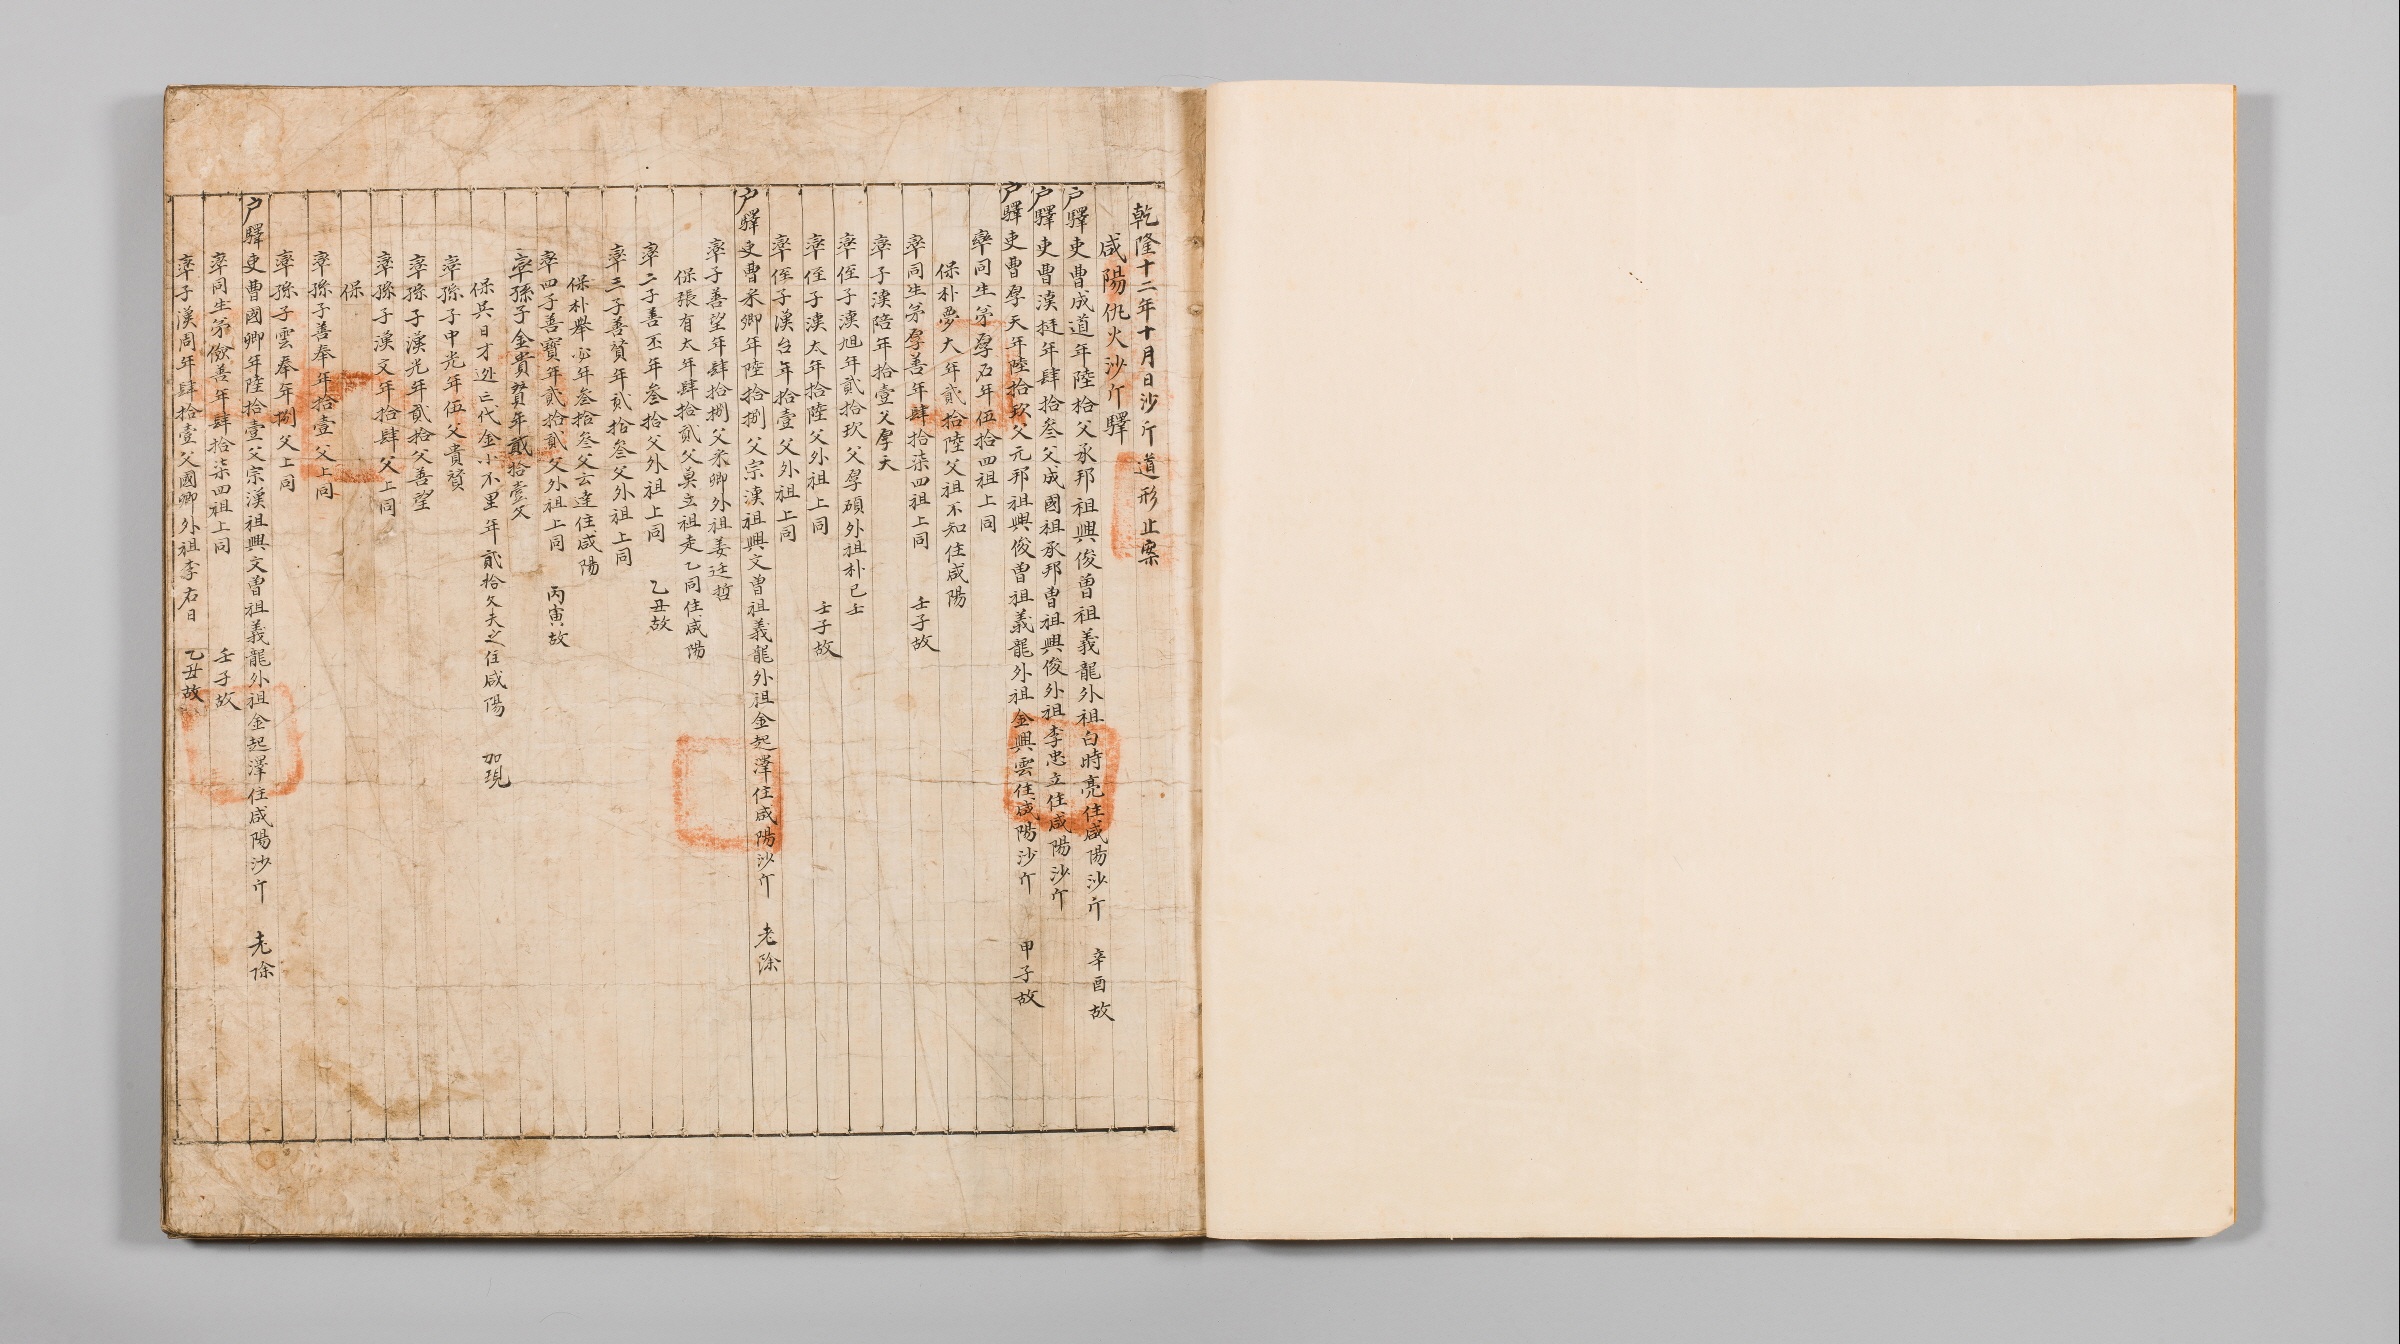 乾隆十二年十月日沙斤道形止案
咸陽仇火沙斤驛
户驛吏曺成道年陸拾父承邦祖興俊曾祖義龍外祖白時亮住咸陽沙斤 辛酉故
户驛吏曺漢挺年肆拾叁父成國祖承邦曾祖興俊外祖李忠立住咸陽沙斤
户驛吏曺厚天年陸拾玖父元邦祖興俊曾祖義龍外祖金興雲住咸陽沙斤 甲子故
率同生弟厚石年伍拾四祖上同
保朴夢大年貳拾陸父祖不知住咸陽
率同生弟厚善年肆拾柒四祖上同 壬子故
率子漢陪年拾壹父厚天
率侄子漢旭年貳拾玖父厚碩外祖朴已士
率侄子漢太年拾陸父外祖上同 壬子故
率侄子漢台年拾壹父外祖上同
户驛吏曺釆卿年陸拾捌父宗漢祖興文曾祖義龍外祖金起澤住咸陽沙斤 老除
率子善望年肆拾捌父釆卿外祖姜廷哲
保張有太年肆拾貳父莫立祖走乙同住咸陽
率二子善丕年叁拾父外祖上同 乙丑故
率三子善贇年貳拾叁父外祖上同
保朴舉必年叁拾叁父云達住咸陽
率四子善寶年貳拾貳父外祖上同 丙寅故
率孫子金貴贇年貳拾壹父
保吳日才迯亡代金小不里年貳拾父夫之住咸陽 加現
率孫子中光年伍父貴贇
率孫子漢光年貳拾父善望
率孫子漢文年拾肆父上同
保
率孫子善奉年拾壹父上同
率孫子雲奉年捌父上同
户驛吏曺國卿年陸拾壹父宗漢祖興文曾祖義龍外祖金起澤住咸陽沙斤 老除
率同生弟儉善年肆拾柒四祖上同 壬子故
率子漢周年肆拾壹父國卿外祖李右日 乙丑故